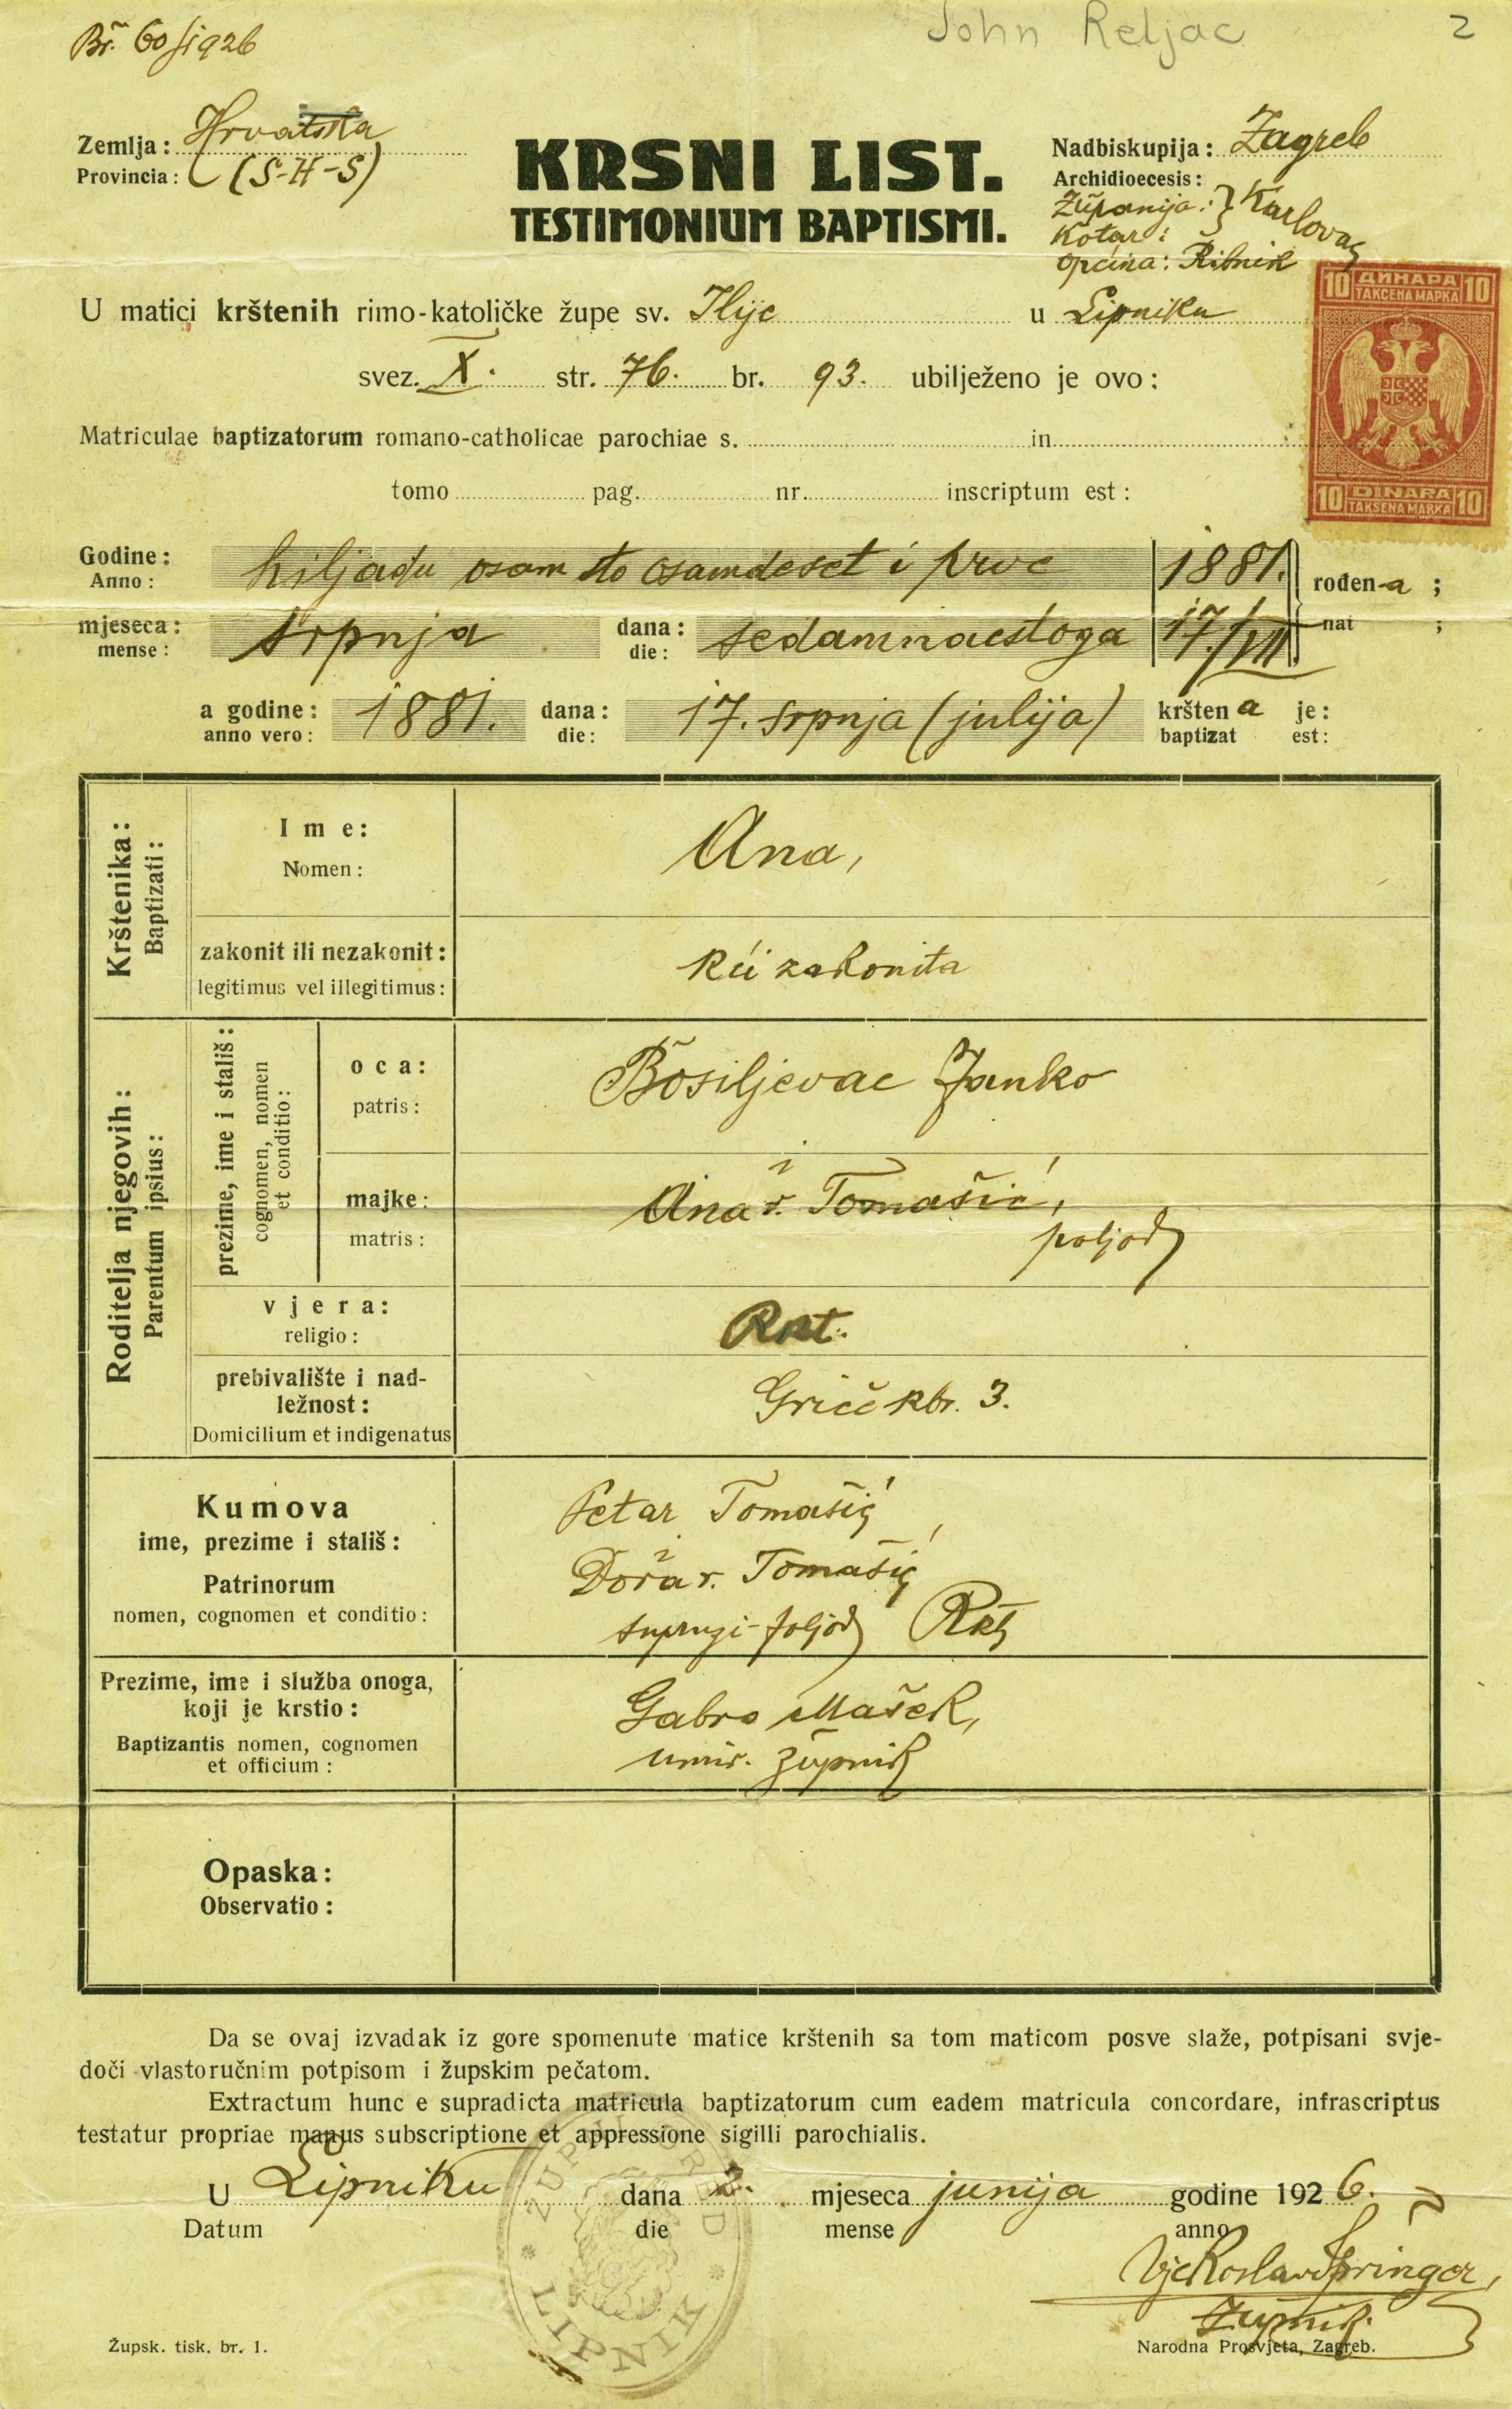 Br. 60/1926
John Reljac
2
Zemlja: Hrvatska
Provincia: (S-H-S)
KRSNI LIST.
TESTIMONIUM BAPTISMI.
Nadbiskupija: Zagreb
Archidioecesis:
Županija: } Karlovac
Kotar:
općina: Ribnik
10 ДИНАРА 10
ТАКСЕНА МАРКА
10 DINARA 10
TAKSENA MARKA
U matici krštenih rimo-katoličke župe sv. Ilije u Lipniku
svez. X. str. 76. br. 93. ubilježeno je ovo:
Matriculae baptizatorum romano-catholicae parochiae s. in
tomo pag. nr. inscriptum est:
Godine: hiljadu osam sto osamdeset i prve 1881. rođen-a ;
Anno:
mjeseca: srpnja dana: sedamnaestoga 17./VII. nat ;
mense: die:
a godine: 1881. dana: 17. srpnja (julija) kršten a je:
anno vero: die: baptizat est:
Krštenika:
Baptizati:
Ime: Ana,
Nomen:
zakonit ili nezakonit: kći zakonita
legitimus vel illegitimus:
Roditelja njegovih:
Parentum ipsius:
prezime, ime i stališ:
cognomen, nomen
et conditio:
oca: Bosiljevac Janko
patris: i
majke: Ana r. Tomašić,
matris: poljod
vjera: Rkt.
religio:
prebivalište i nad-
ležnost: Grič kbr. 3.
Domicilium et indigenatus
Kumova Petar Tomašić
ime, prezime i stališ: i
Patrinorum Dora r. Tomašić
nomen, cognomen et conditio: supruzi poljod Rkt
Prezime, ime i služba onoga,
koji je krstio: Gabro Mašek,
Baptizantis nomen, cognomen umir. župnik
et officium:
Opaska:
Observatio:
Da se ovaj izvadak iz gore spomenute matice krštenih sa tom maticom posve slaže, potpisani svje-
doči vlastoručnim potpisom i župskim pečatom.
Extractum hunc e supradicta matricula baptizatorum cum eadem matricula concordare, infrascriptus
testatur propriae manus subscriptione et appressione sigilli parochialis.
U Lipniku dana 2. mjeseca junija godine 1926.
Datum die mense anno
ŽUPNI URED
LIPNIK
Vjekoslav Springer,
župnik.
Župsk. tisk. br. 1.
Narodna Prosvjeta, Zagreb.